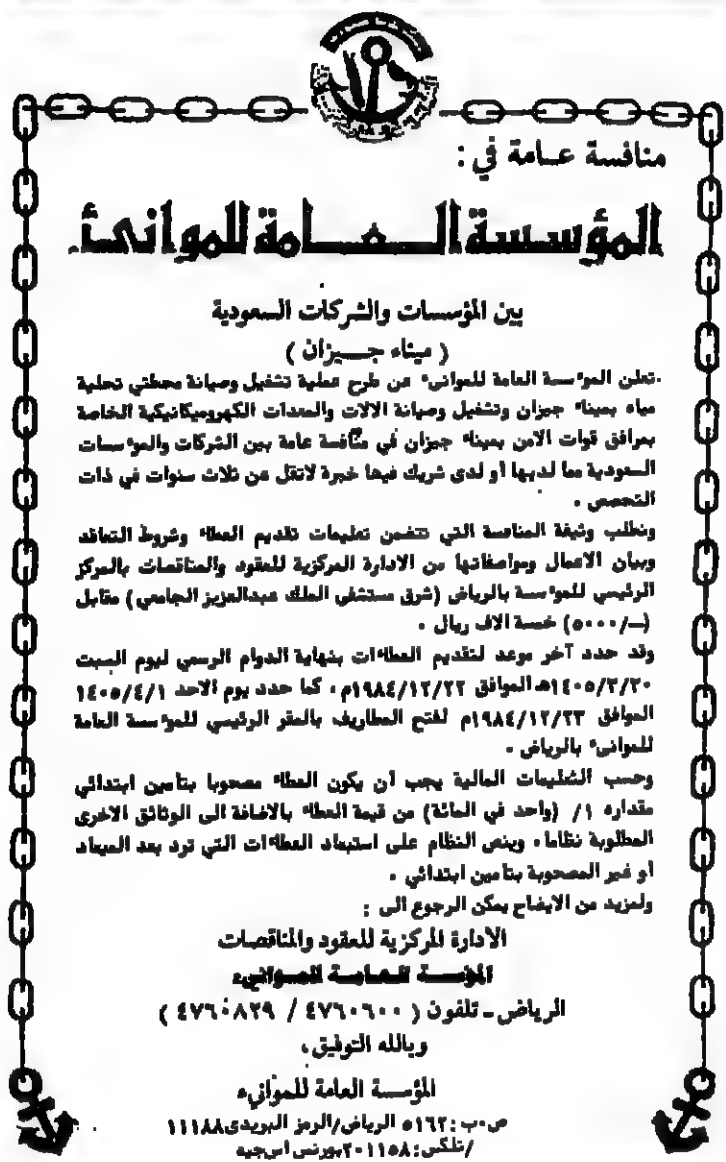 منافسة عـامة في :
المؤسسة الـعـامة للموانئ
بين المؤسسات والشركات السعودية
( ميناء جـيزان )
تعلن المؤسسة العامة للموانيء عن طرح عملية تشغيل وصيانة محطتي تحلية
مياه بميناء جيزان وتشغيل وصيانة الالات والمعدات الكهروميكانيكية الخاصة
بمرافق قوات الامن بميناء جيزان في منافسة عامة بين الشركات والمؤسسات
السعودية مما لديها أو لدى شريك فيها خبرة لاتقل عن ثلاث سنوات في ذات
التخصص .
وتطلب وثيقة المنافسة التي تتضمن تعليمات تقديم العطاء وشروط التعاقد
وبيان الاعمال ومواصفاتها من الادارة المركزية للعقود والمناقصات بالمركز
الرئيسي للمؤسسة بالرياض (شرق مستشفى الملك عبدالعزيز الجامعي) مقابل
(ــ/٥٠٠٠) خمسة الاف ريال .
وقد حدد آخر موعد لتقديم العطاءات بنهاية الدوام الرسمي ليوم السبت
١٤٠٥/٣/٣٠هـ الموافق ١٩٨٤/١٢/٢٢م ، كما حدد يوم الاحد ١٤٠٥/٤/١
الموافق ١٩٨٤/١٢/٢٣م لفتح المظاريف بالمقر الرئيسي للمؤسسة العامة
للموانيء بالرياض .
وحسب التعليمات المالية يجب أن يكون العطاء مصحوبا بتأمين ابتدائي
مقداره ١/ (واحد في المائة) من قيمة العطاء بالاضافة الى الوثائق الاخرى
المطلوبة نظاما . وينص النظام على استبعاد العطاءات التي ترد بعد الميعاد
أو غير المصحوبة بتأمين ابتدائي .
ولمزيد من الايضاح يمكن الرجوع الى :
الأدارة المركزية للعقود والمناقصات
المؤسسة العامة للموانيء
الرياض ـ تلفون ( ٤٧٦٠٦٠٠ / ٤٧٦٠٨٢٩ )
وبالله التوفيق ،
المؤسسة العامة للموانيء
ص.ب : ٥١٦٢ الرياض/الرمز البريدى ١١١٨٨
/تلكس : ٢٠١١٥٨ بورتس اس جيه